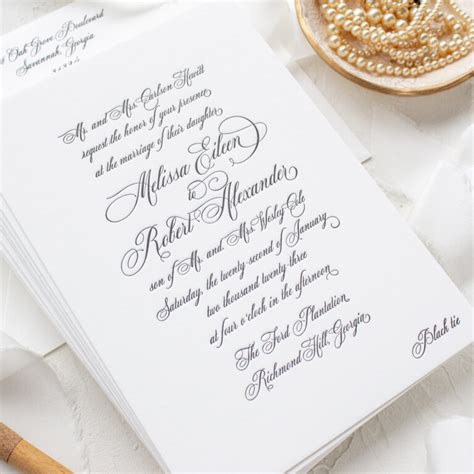 Oak Grove Boulevard
Savannah, Georgia
Mr. and Mrs. Carlson Hewitt
request the honor of your presence
at the marriage of their daughter
Melissa Eileen
to
Robert Alexander
son of Mr. and Mrs. Wesley Cole
Saturday, the twenty-second of January
two thousand twenty three
at four o'clock in the afternoon
The Ford Plantation
Richmond Hill, Georgia
Black tie